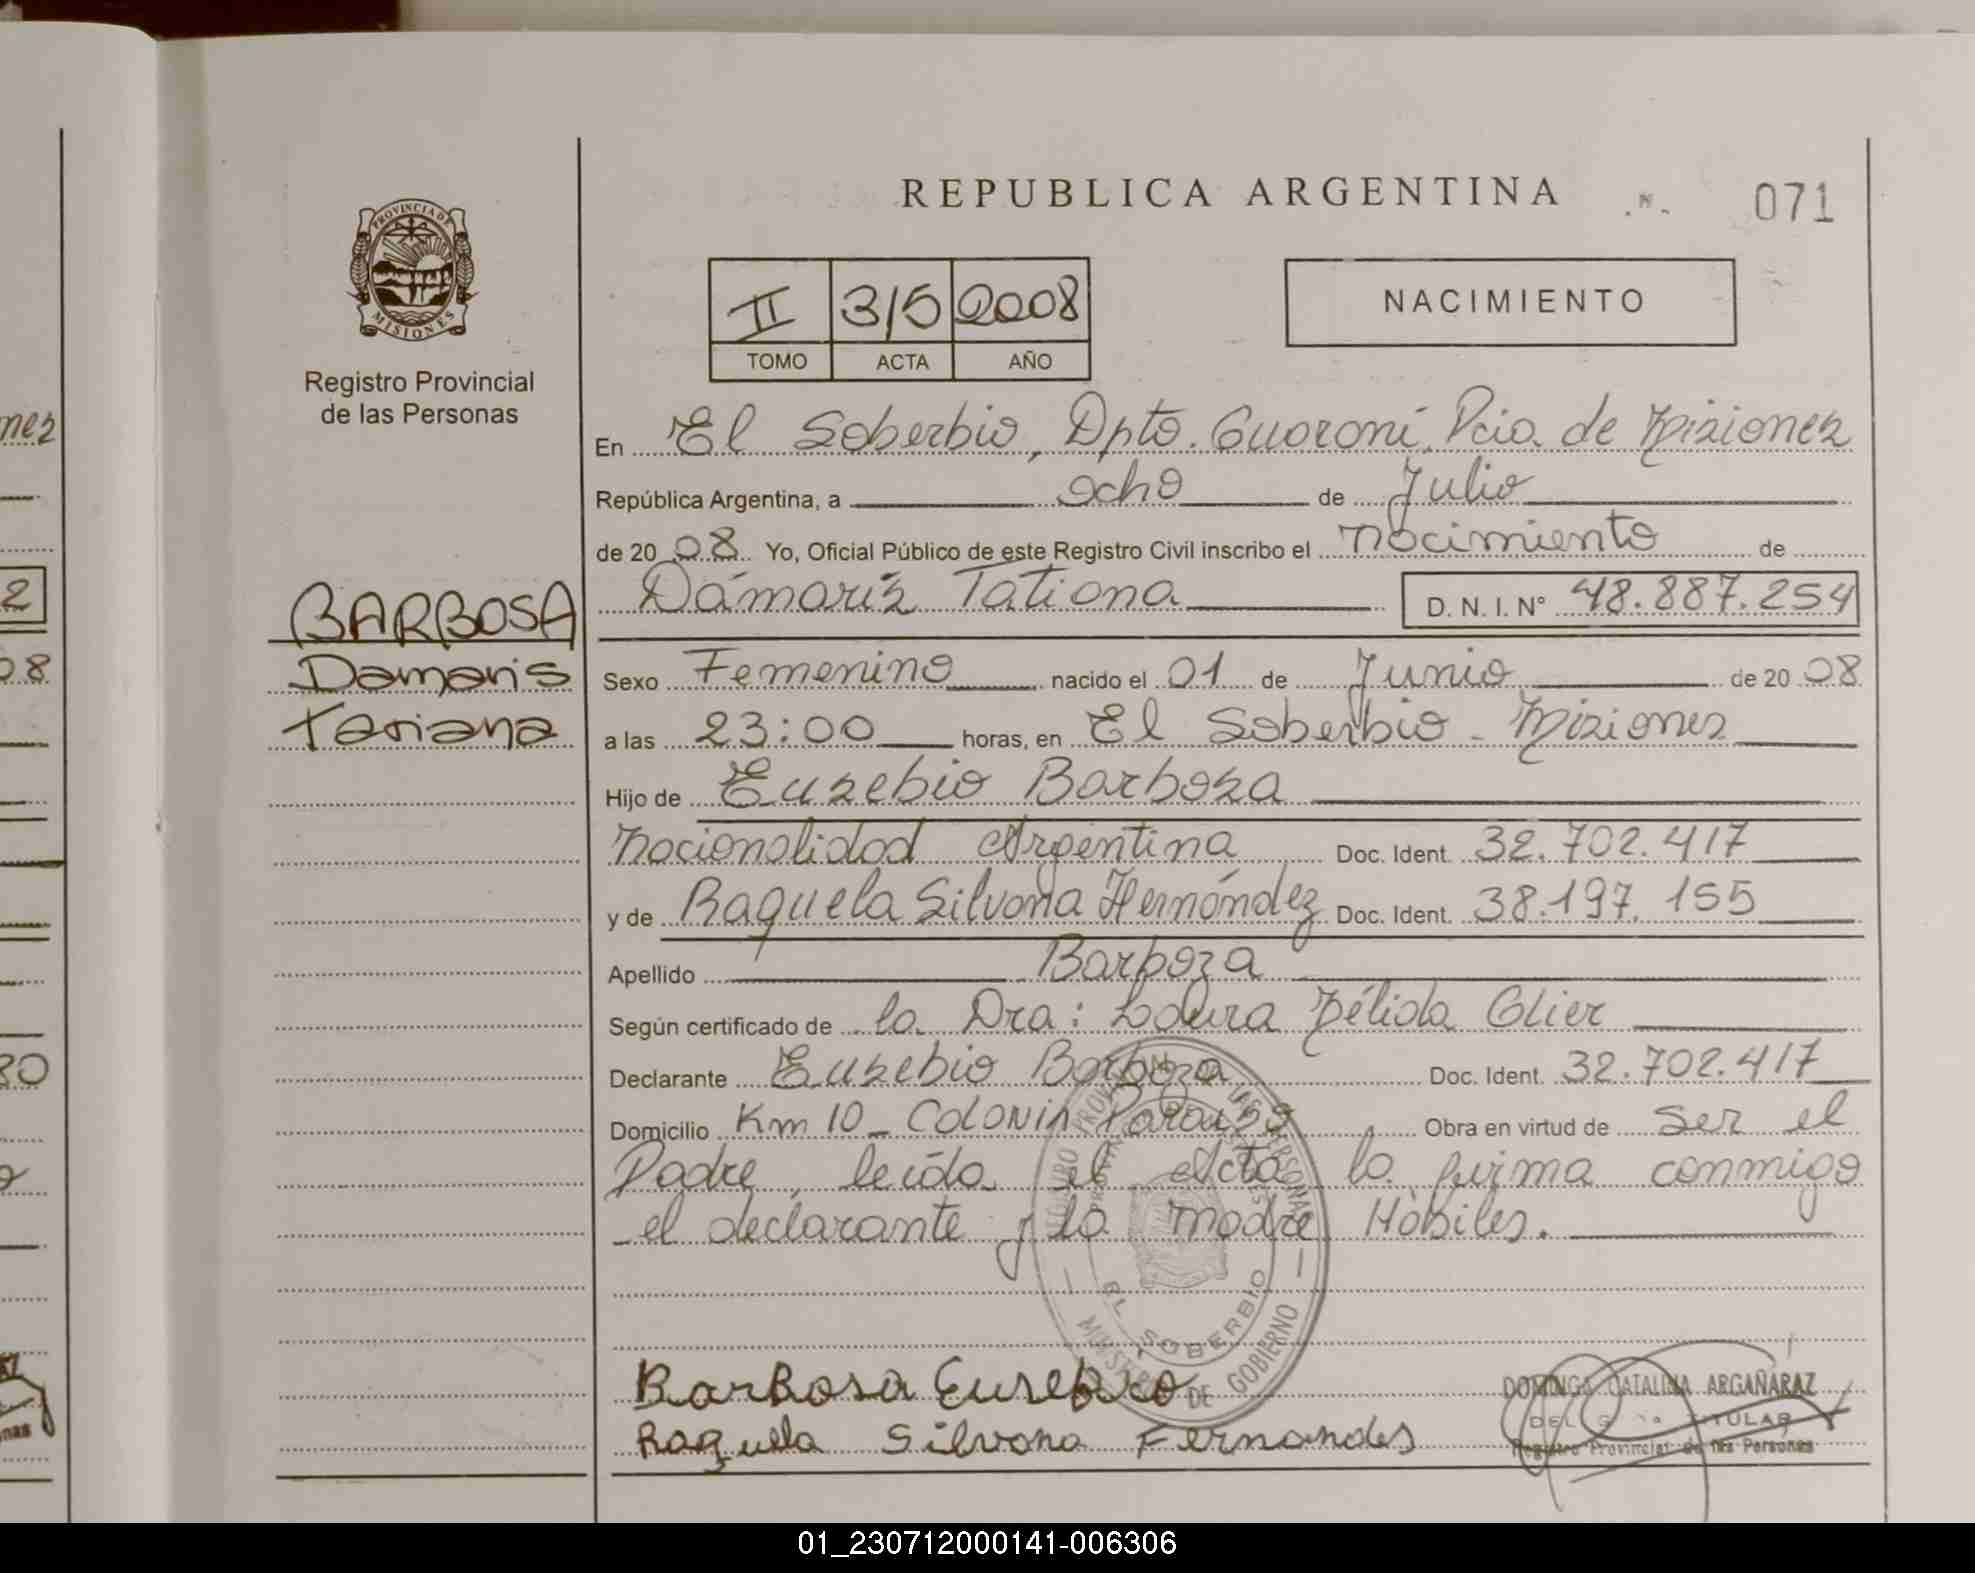 REPUBLICA ARGENTINA
071
PROVINCIA DE
MISIONES
Registro Provincial
de las Personas
II 3/5 2008
TOMO ACTA AÑO
NACIMIENTO
nez
En El Soberbio, Dpto. Guaraní, Pcia. de Misiones
República Argentina, a ocho de Julio
de 20 08 Yo, Oficial Público de este Registro Civil inscribo el nacimiento de
2
BARBOSA
Dámaris Tatiana D. N. I. N° 48.887.254
08
Damaris
Sexo Femenino nacido el 01 de Junio de 20 08
Tatiana
a las 23:00 horas, en El Soberbio - Misiones
Hijo de Eusebio Barbosa
Nacionalidad Argentina Doc. Ident. 32.702.417
y de Raquela Silvana Hernández Doc. Ident. 38.197.155
Apellido Barboza
Según certificado de la Dra: Laura Nélida Glier
80
Declarante Eusebio Barboza Doc. Ident. 32.702.417
Domicilio Km 10 - Colonia Paraiso Obra en virtud de ser el
Padre, leída el Acta la firma conmigo
el declarante y la madre Hábiles.
EL SOBERBIO
MINISTERIO DE GOBIERNO
Barbosa Eusebio
Raquela Silvana Fernandes
DOMINGA CATALINA ARGAÑARAZ
DELEGADA TITULAR
Registro Provincial de las Personas
nas
01_230712000141-006306